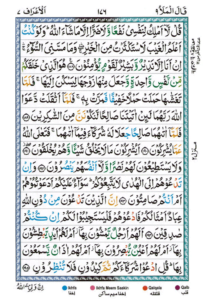 قَالَ الْمَلَأُ ٩ ١٤٦ اَلْاَعْرَاف ٧
قُلْ لَّاۤ اَمْلِكُ لِنَفْسِیْ نَفْعًا وَّلَا ضَرًّا اِلَّا مَا شَآءَ اللّٰهُ ؕ وَلَوْ كُنْتُ
اَعْلَمُ الْغَیْبَ لَاسْتَكْثَرْتُ مِنَ الْخَیْرِ ۛۖ وَمَا مَسَّنِیَ السُّوْٓءُ ۛۚ
اِنْ اَنَا اِلَّا نَذِیْرٌ وَّبَشِیْرٌ لِّقَوْمٍ یُّؤْمِنُوْنَ ۝ هُوَ الَّذِیْ
خَلَقَكُمْ مِّنْ نَّفْسٍ وَّاحِدَةٍ وَّجَعَلَ مِنْهَا زَوْجَهَا لِیَسْكُنَ اِلَیْهَا ۚ فَلَمَّا
تَغَشّٰىهَا حَمَلَتْ حَمْلًا خَفِیْفًا فَمَرَّتْ بِهٖ ۚ فَلَمَّاۤ اَثْقَلَتْ دَّعَوَا
اللّٰهَ رَبَّهُمَا لَىِٕنْ اٰتَیْتَنَا صَالِحًا لَّنَكُوْنَنَّ مِنَ الشّٰكِرِیْنَ ۝
فَلَمَّاۤ اٰتٰىهُمَا صَالِحًا جَعَلَا لَهٗ شُرَكَآءَ فِیْمَاۤ اٰتٰىهُمَا ۚ فَتَعٰلَی اللّٰهُ
عَمَّا یُشْرِكُوْنَ ۝ اَیُشْرِكُوْنَ مَا لَا یَخْلُقُ شَیْـًٔا وَّهُمْ یُخْلَقُوْنَ ۝
وَلَا یَسْتَطِیْعُوْنَ لَهُمْ نَصْرًا وَّلَاۤ اَنْفُسَهُمْ یَنْصُرُوْنَ ۝ وَاِنْ
تَدْعُوْهُمْ اِلَی الْهُدٰی لَا یَتَّبِعُوْكُمْ ؕ سَوَآءٌ عَلَیْكُمْ اَدَعَوْتُمُوْهُمْ
اَمْ اَنْتُمْ صَامِتُوْنَ ۝ اِنَّ الَّذِیْنَ تَدْعُوْنَ مِنْ دُوْنِ اللّٰهِ
عِبَادٌ اَمْثَالُكُمْ فَادْعُوْهُمْ فَلْیَسْتَجِیْبُوْا لَكُمْ اِنْ كُنْتُمْ
صٰدِقِیْنَ ۝ اَلَهُمْ اَرْجُلٌ یَّمْشُوْنَ بِهَاۤ ؗ اَمْ لَهُمْ اَیْدٍ یَّبْطِشُوْنَ
بِهَاۤ ؗ اَمْ لَهُمْ اَعْیُنٌ یُّبْصِرُوْنَ بِهَاۤ ؗ اَمْ لَهُمْ اٰذَانٌ یَّسْمَعُوْنَ
بِهَا ؕ قُلِ ادْعُوْا شُرَكَآءَكُمْ ثُمَّ كِیْدُوْنِ فَلَا تُنْظِرُوْنِ ۝ اِنَّ
Ikhfa Ikhfa Meem Saakin Qalqala Qalb